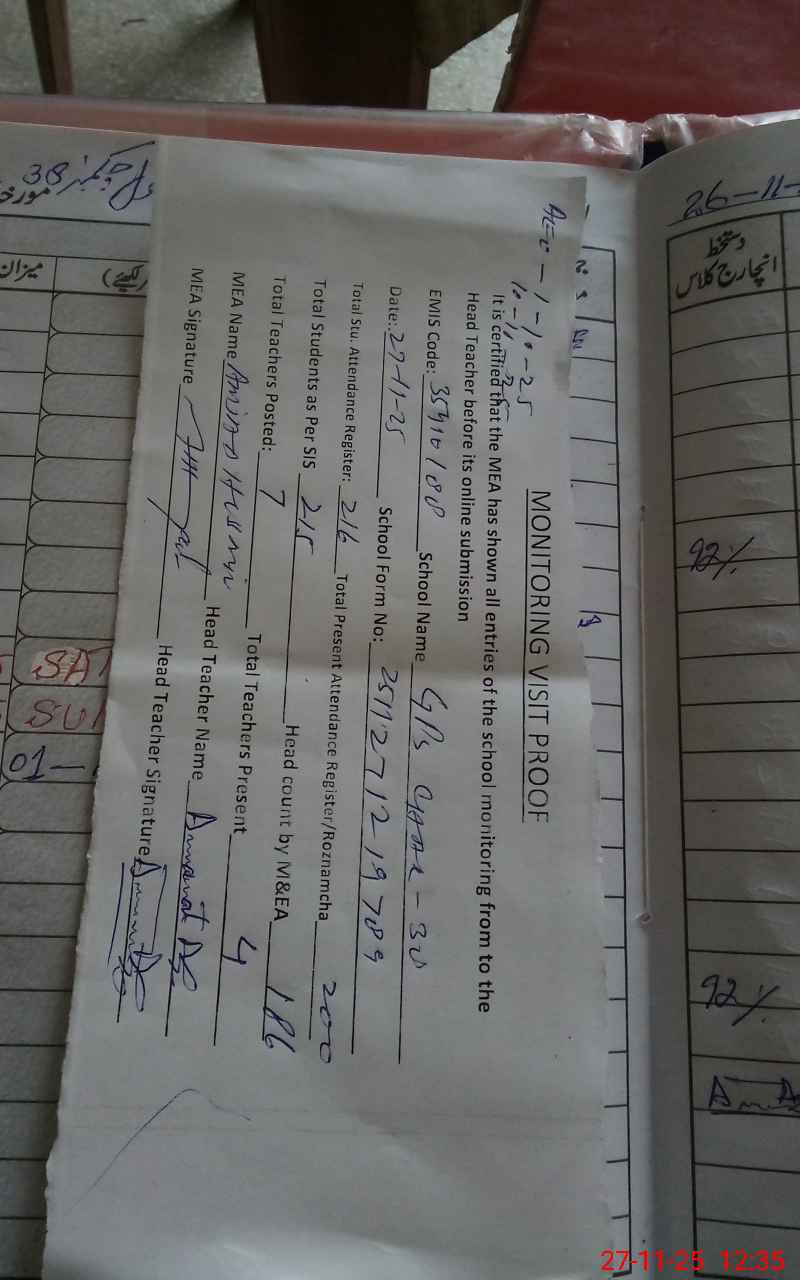 MONITORING VISIT PROOF
It is certified that the MEA has shown all entries of the school monitoring from to the
Head Teacher before its online submission
EMIS Code: 35910188 School Name GPS - 30
Date: 27-11-25 School Form No: 2511271219789
Total Stu. Attendance Register: 216 Total Present Attendance Register/Roznamcha 200
Total Students as Per SIS 215 Head count by M&EA 186
Total Teachers Posted: 7 Total Teachers Present 4
MEA Name Head Teacher Name
MEA Signature Head Teacher Signature
26-11-
دستخط
انچارج کلاس
92%
92%
38
میزان
SAT
SUN
01-
27-11-25 12:35